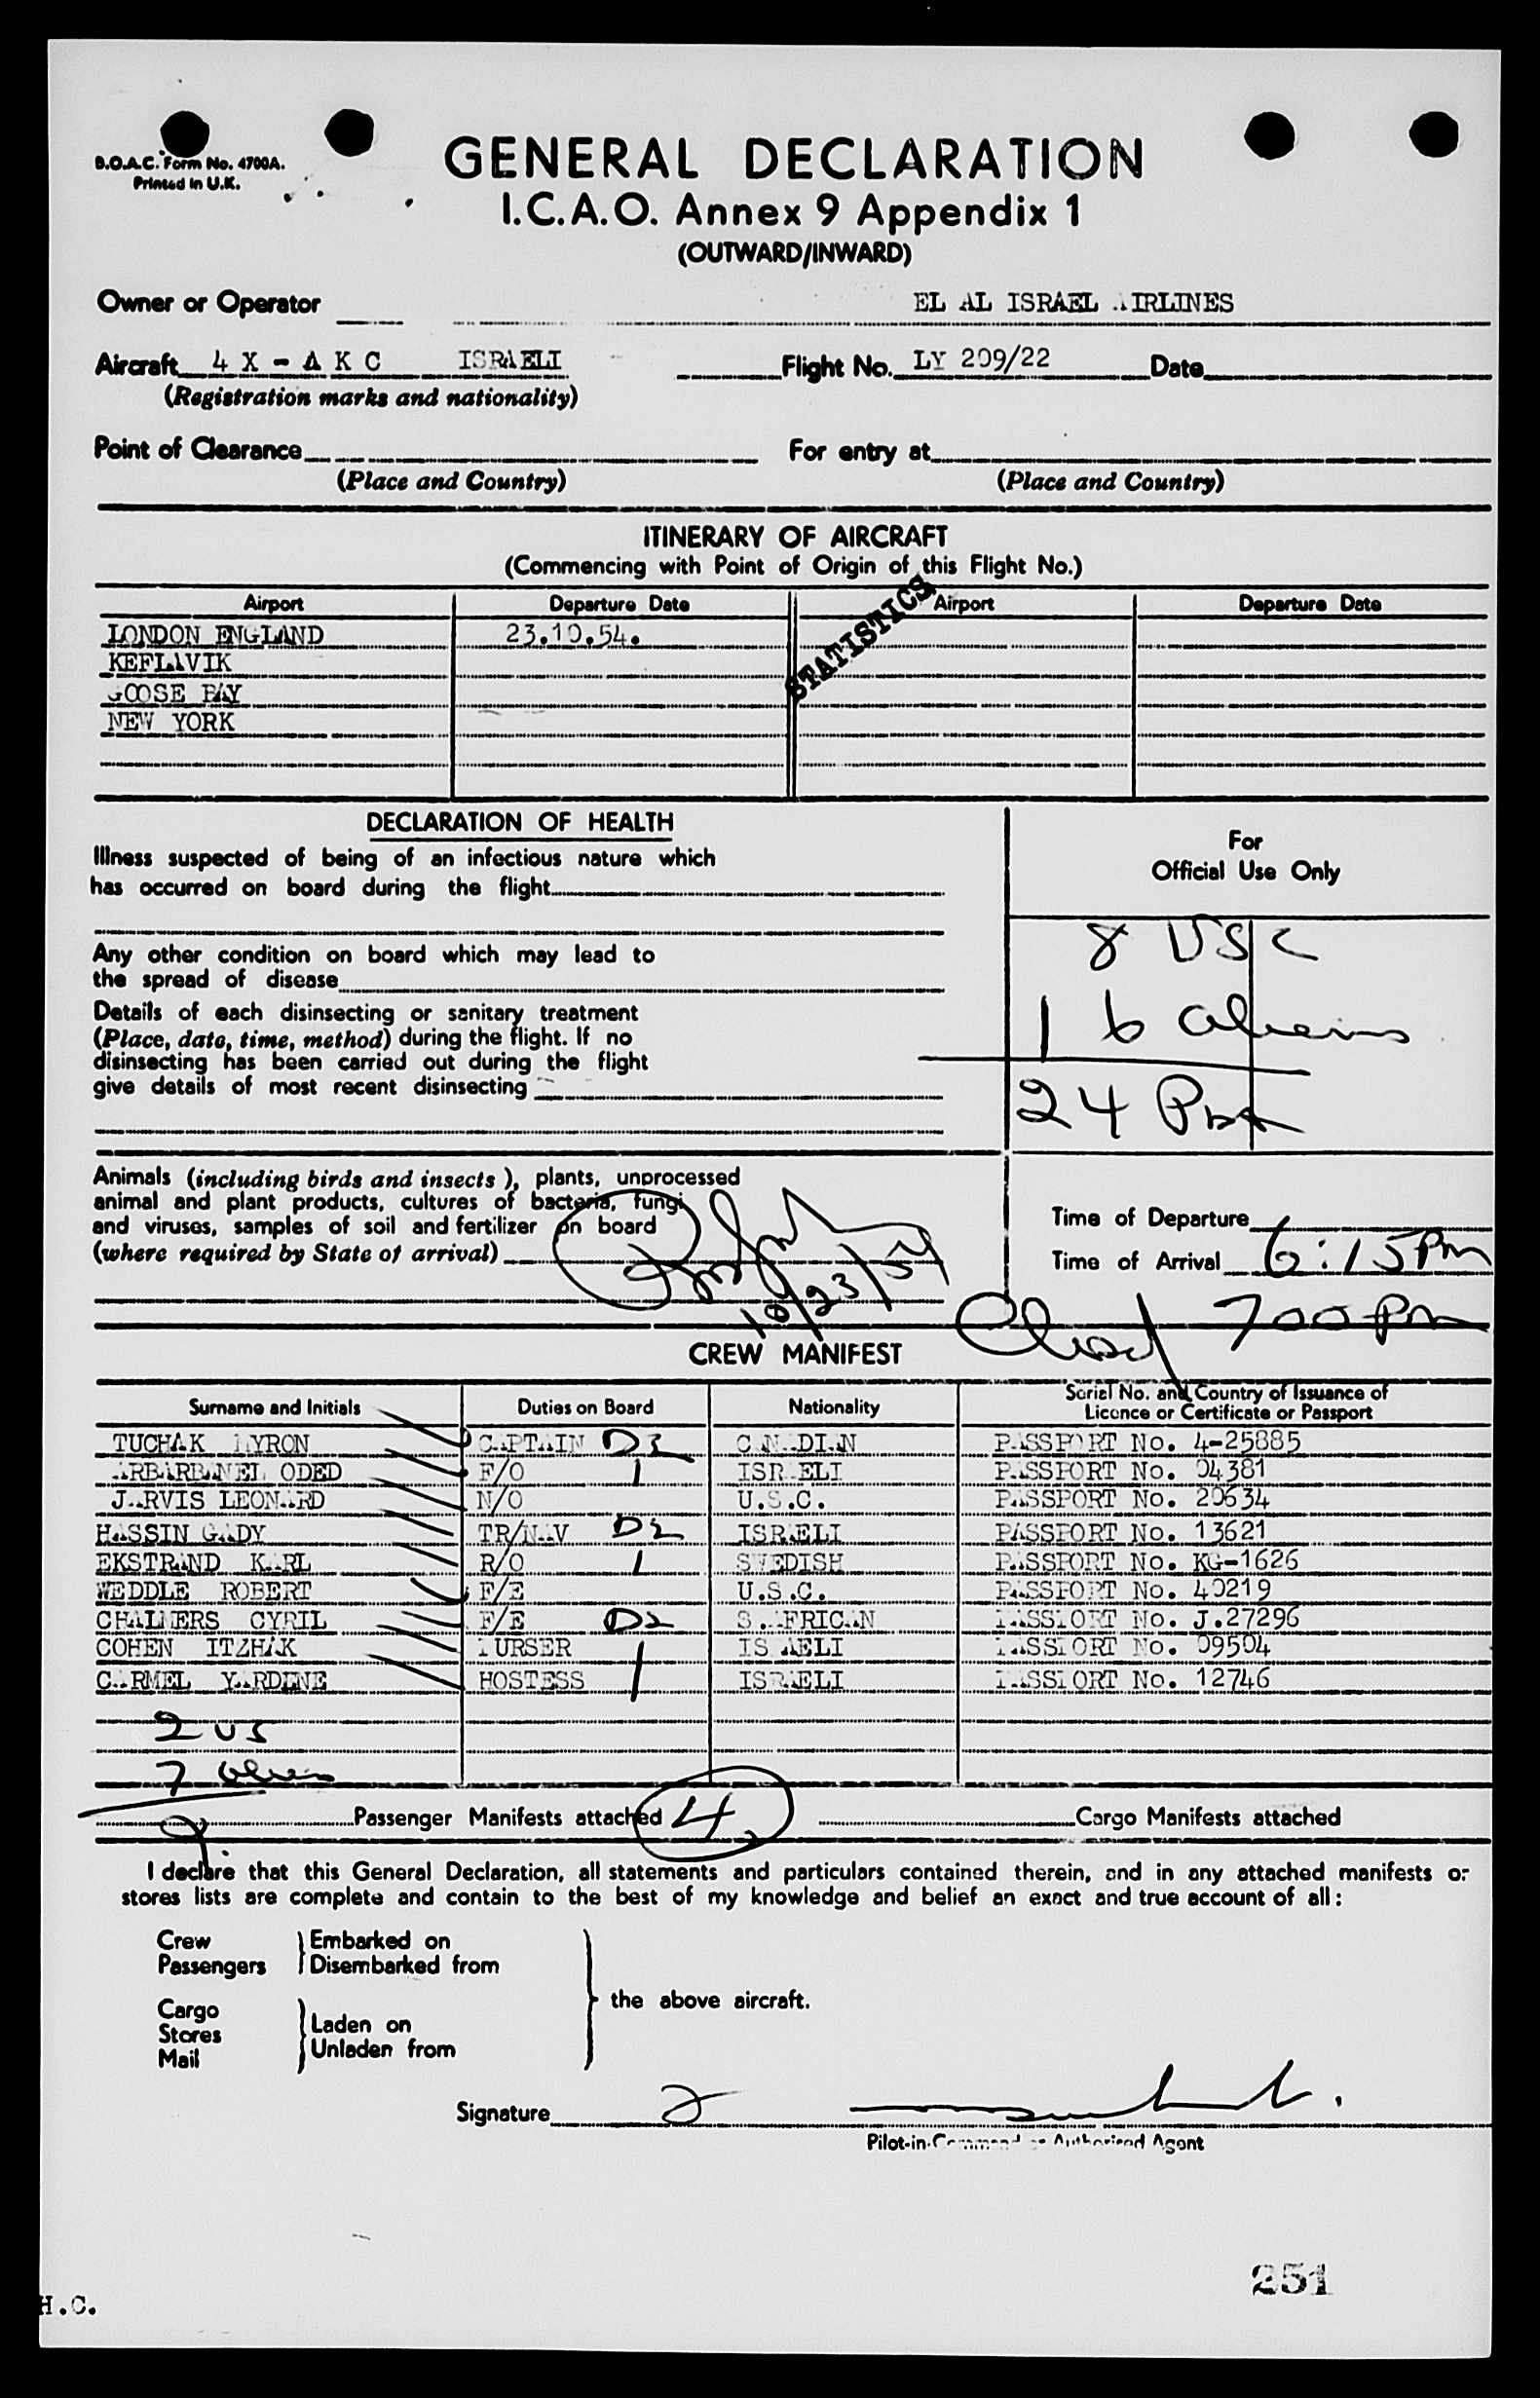 B.O.A.C. Form No. 4700A.
Printed in U.K.
GENERAL DECLARATION
I.C.A.O. Annex 9 Appendix 1
(OUTWARD/INWARD)
Owner or Operator EL AL ISRAEL AIRLINES
Aircraft 4 X - A K C ISRAELI Flight No. LY 209/22 Date
(Registration marks and nationality)
Point of Clearance For entry at
(Place and Country) (Place and Country)
ITINERARY OF AIRCRAFT
(Commencing with Point of Origin of this Flight No.)
Airport Departure Date Airport Departure Date
STATISTICS
LONDON ENGLAND 23.10.54.
KEFLAVIK
GOOSE BAY
NEW YORK
DECLARATION OF HEALTH
Illness suspected of being of an infectious nature which
has occurred on board during the flight
Any other condition on board which may lead to
the spread of disease
Details of each disinsecting or sanitary treatment
(Place, date, time, method) during the flight. If no
disinsecting has been carried out during the flight
give details of most recent disinsecting
For
Official Use Only
8 USC
16 aliens
24 Pax
Animals (including birds and insects), plants, unprocessed
animal and plant products, cultures of bacteria, fungi
and viruses, samples of soil and fertilizer on board
(where required by State of arrival)
10/23/54
Time of Departure
Time of Arrival 6:15 Pm
700 Pm
CREW MANIFEST
Surname and Initials Duties on Board Nationality Serial No. and Country of Issuance of
Licence or Certificate or Passport
TUCHAK MYRON CAPTAIN D2 CANADIAN PASSPORT No. 4-25885
ARBARBANEL ODED F/O 1 ISRAELI PASSPORT No. 04381
JARVIS LEONARD N/O U.S.C. PASSPORT No. 20634
HASSIN GADY TR/NAV D2 ISRAELI PASSPORT No. 13621
EKSTRAND KARL R/O 1 SWEDISH PASSPORT No. KG-1626
WEDDLE ROBERT F/E U.S.C. PASSPORT No. 40219
CHALMERS CYRIL F/E D2 S.AFRICAN PASSPORT No. J.27296
COHEN ITZHAK PURSER ISRAELI PASSPORT No. 09504
CARMEL YARDENE HOSTESS 1 ISRAELI PASSPORT No. 12746
2 US
7 aliens
9 Passenger Manifests attached 4 Cargo Manifests attached
I declare that this General Declaration, all statements and particulars contained therein, and in any attached manifests or
stores lists are complete and contain to the best of my knowledge and belief an exact and true account of all:
Crew Embarked on
Passengers Disembarked from
the above aircraft.
Cargo
Stores Laden on
Mail Unladen from
Signature
Pilot-in-Command or Authorised Agent
251
H.C.